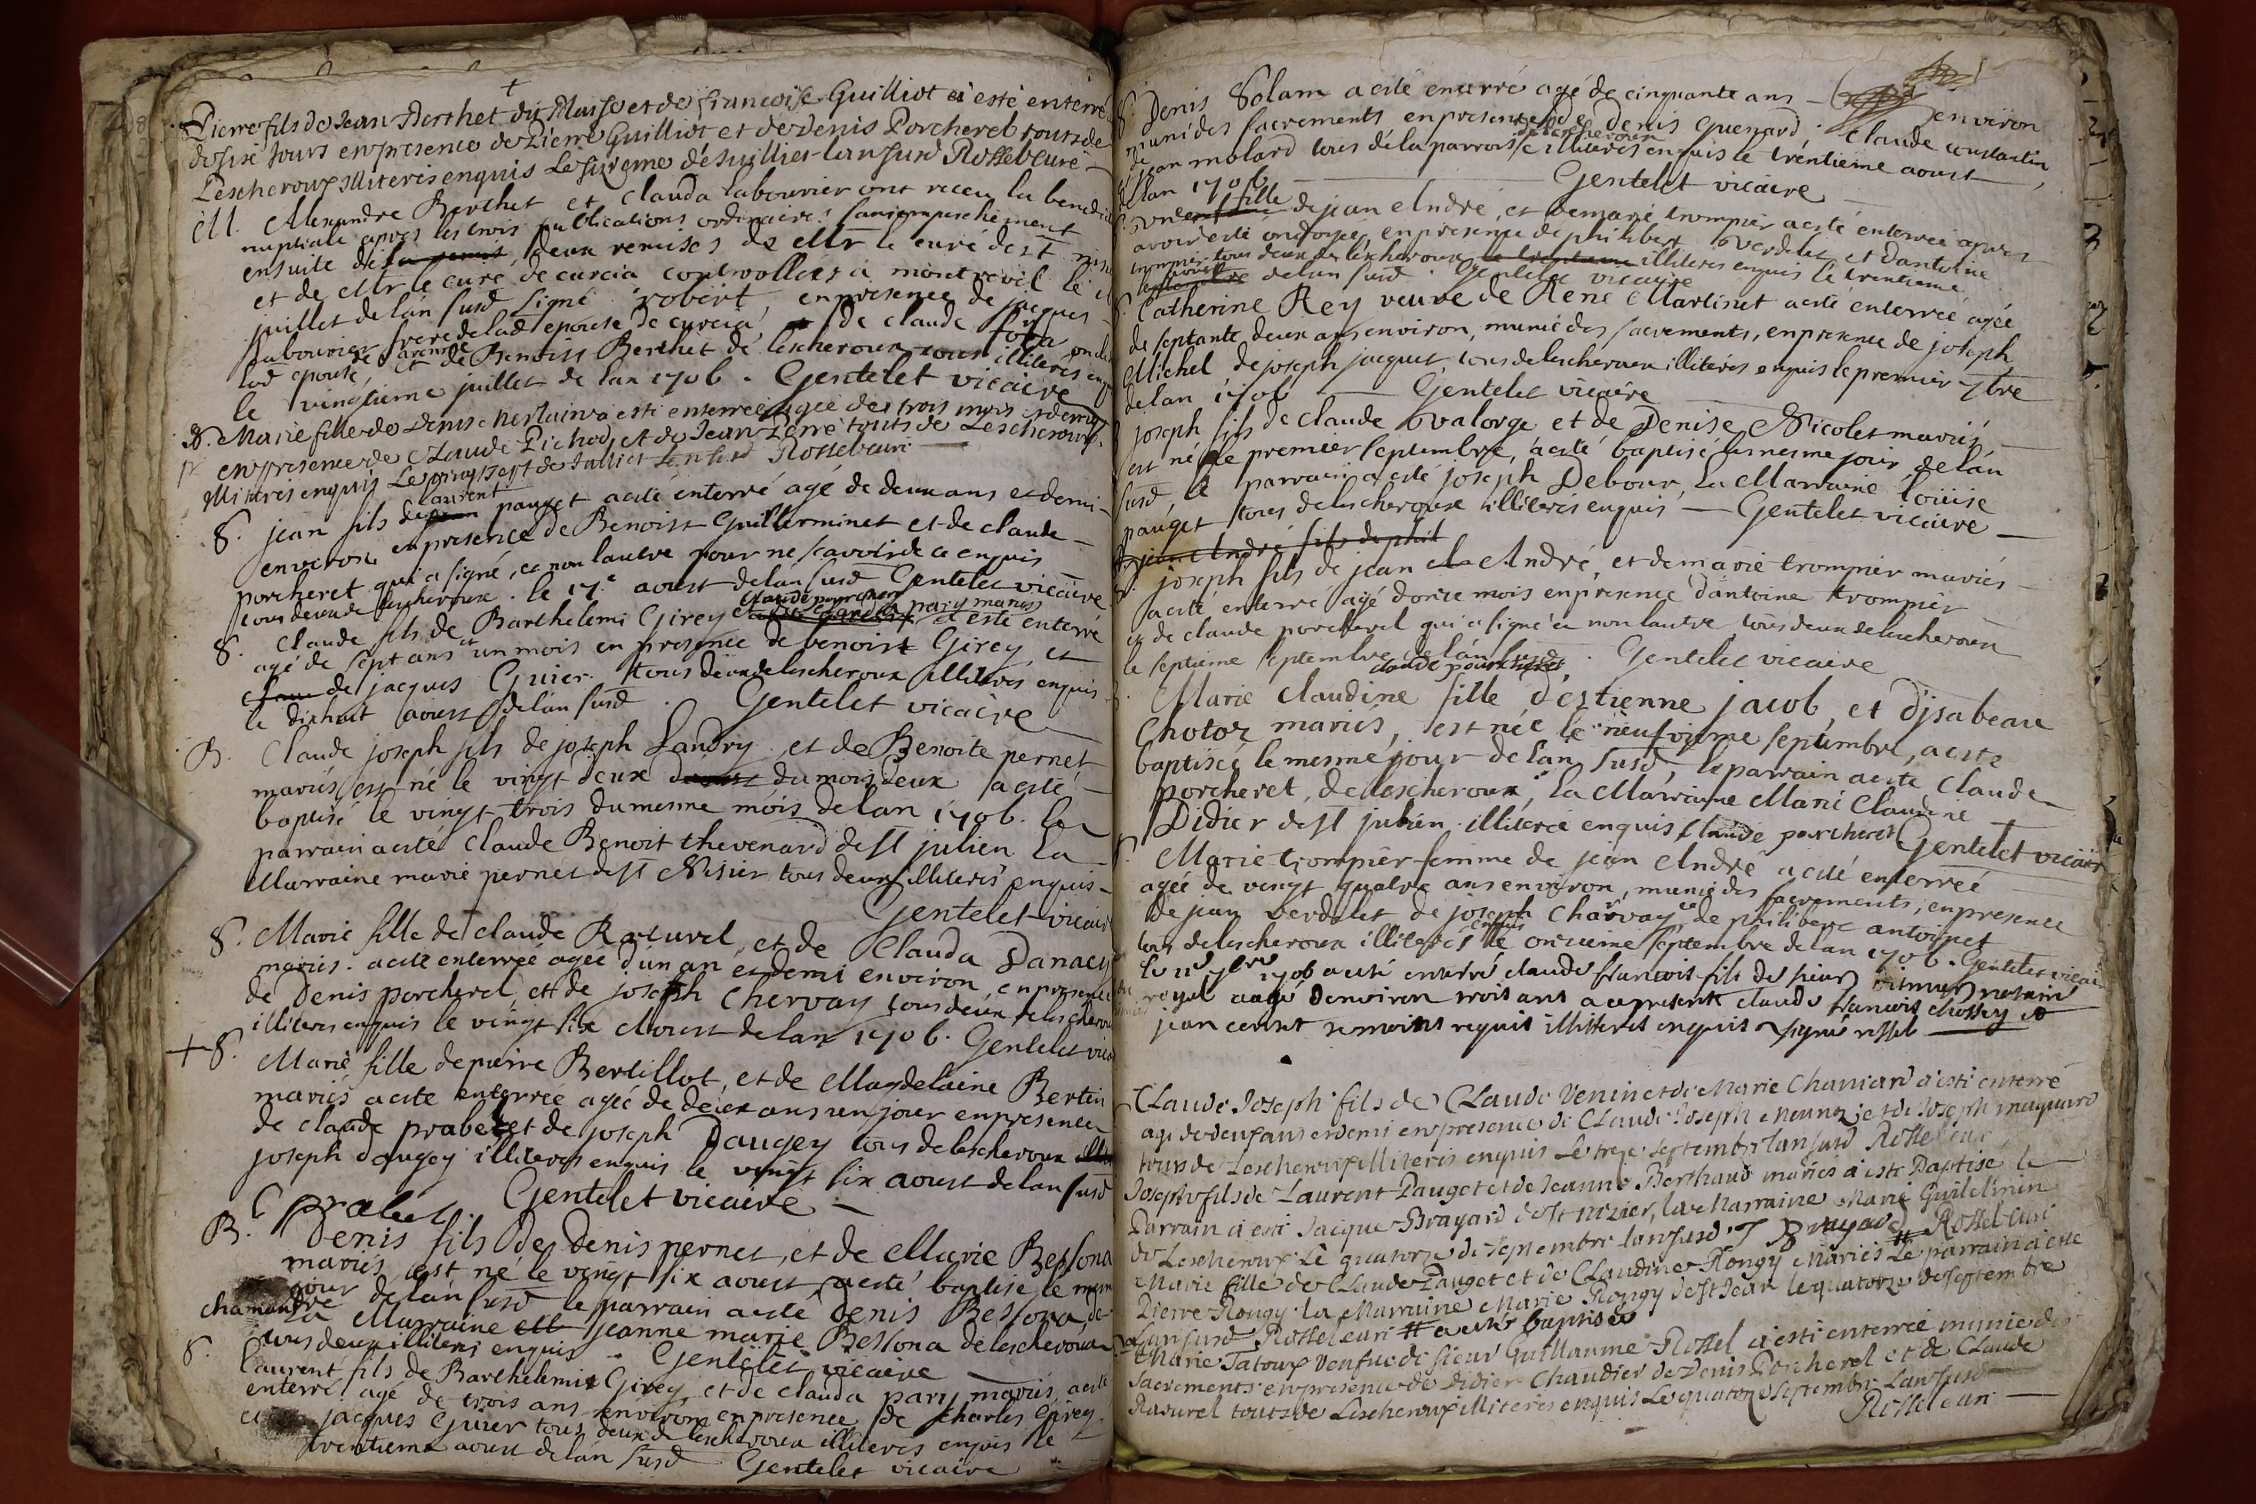 +
Pierre fils de Jean Berthet dit et de francoise Guilliot a esté enterré
de six Jours en presence de Pierre Guilliot et de Denis Porcherel touts de
Lescheroux illiteres enquis Le sixieme de Juillet lan susd Rossel curé
M. Alexandre Berthet et Clauda labourier ont receu la benedic
nuptiale apres les trois publications ordinaires sans empeschement
ensuite de deux remises de Mr le curé de st
et de Mr le curé de curcia controollées a montrevel le
juillet de lan susd signé robert en presence de jacques
labourier frere de lad epouse de curcia, de claude
lad epouse, et de Benoist Berthet de lescheroux tous illiterés enq
le vingtieme juillet de lan 1706. Gentelet vicaire
S. Marie fille de Denis chertain a esté enterree agee de trois mois et demy
en presence de Claude Pichod et de Jean Perré touts de Lescheroux
illiteres enquis Le vingt sept de Juillet Lan susd Rossel curé
laurent
S. jean fils de pauget a esté enterré agé de deux ans et demi
environ en presence de Benoist Guilleminet et de claude
porcheret qui a signé, et non lautre pour ne scavoir de ce enquis
tous deux de lescheroux. le 17e aoust de lan susd Gentelet vicaire
claude porcheret
S. Claude fils de Barthelemi Girey pary mariés a esté enterré
agé de sept ans et un mois en presence de benoist Girey, et
de jacques Guier tous deux de lescheroux illiteres enquis
le dixhuit aoust de lan susd. Gentelet vicaire
B. Claude joseph fils de joseph Landry et de Benoite pernet
mariés est né le vingt deux du mois deux a esté
baptisé le vingt trois du mesme mois de lan 1706. le
parrain a esté Claude Benoit thevenard de st julien La
Marraine marie pernet de st Nisier tous deux illiteres enquis
Gentelet vicaire
S. Marie fille de claude Ravurel, et de Clauda Danacy
mariés. a esté enterrée agée d'un an et demi environ, en presence
de Denis porcherel, et de joseph Chervay tous deux de lescheroux
illiteres enquis le vingt six Aoust de lan 1706. Gentelet vica
+ S. Marie fille de pierre Bertillot, et de Magdelaine Bertin
mariés a esté enterrée agée de deux ans un jour en presence
de claude prabel et de joseph Daugey tous de lescheroux
joseph daugey illiteres enquis le vingt six aoust de lan susd
C prabel. Gentelet vicaire
B. Denis fils de Denis pernet, et de Marie Bessona
mariés, est né le vingt six aoust, a esté baptisé le mesm
jour de lan susd le parrain a esté denis Bessona, de
chamandre La Marraine jeanne marie Bessona de lescheroux
tous deux illiteres enquis. Gentelet vicaire
S. laurent fils de Barthelemi Girey, et de clauda pary mariés, a esté
enterré agé de trois ans environ en presence de Charles Girey
et jacques Guier tous deux de lescheroux illiteres enquis le
trentieme aoust de lan susd Gentelet vicaire
S. Denis Solam a esté enterré agé de cinquante ans environ
muni des sacrements en presence de denis Guenard, Claude constantin
de lescheroux
de jean molard tous de la parroisse illiteres enquis le trentieme aoust
de lan 1706 Gentelet vicaire
S. une fille de jean André, et de marie trompier a esté enterrée apres
avoir esté ondoyée, en presence de philibert Verdelet, et dantoine
trompier tous deux de lescheroux illiteres enquis le trentieme
aoust de lan susd. Gentelet vicaire
S. Catherine Rey veuve de René Martinet a esté enterrée agée
de septante deux ans environ, munie des sacrements, en presence de joseph
Michel de joseph jacquet, tous de lescheroux illiteres enquis le premier 7bre
de lan 1706 Gentelet vicaire
joseph fils de claude Valorge et de Denise Nicolet mariés
est né le premier septembre, a esté baptisé le mesme jour de lan
susd, le parrain a esté joseph Debour, La Marraine Louise
pauget tous de lescheroux illiteres enquis Gentelet vicaire
jean André fils de phil
S. joseph fils de jean André, et de marie trompier mariés
a esté enterré agé donze mois en presence dantoine trompier
et de claude porcherel qui a signé et non lautre tous deux de lescheroux
le septieme septembre de lan susd. Gentelet vicaire
claude porcheret
Marie claudine fille destienne jacob, et djsabeau
Chotoz mariés, est née le neufvieme septembre, a esté
baptisée le mesme jour de lan susd, le parrain a esté Claude
porcheret, de lescheroux, La Marraine Marie Claudine
Didier de st julien. illiterée enquis claude porcheret Gentelet vicaire
S. Marie trompier femme de jean André a esté enterrée
agée de vingt quatre ans environ, munie des sacrements, en presence
de jean Verdelet de joseph Charvay, et de philibert antoinet
tous de lescheroux illiterés enquis le onzieme septembre de lan 1706. Gentelet vicai
le 11e 7bre 1706 a esté enterré claude francois fils de sieur notaire
royal aagé denviron trois ans a ce present claude francois chossey et
jean temoins requis illiteres enquis signé rossel
Claude Joseph fils de Claude Venin et de Marie Chaniard a esté enterré
agé de deux ans et demi en presence de Claude Joseph et de Joseph maquard
touts de Lescheroux illiteres enquis Le treze septembre lan susd Rossel curé
Joseph fils de Laurent Pauget et de Jeanne Berthaud mariés a esté Baptisé le
Parrain a esté Jacque Brayard de st nizier, la Marraine Marie Guilelmin
de Lescheroux Le quatorze de septembre lan susd J Brayard Rossel curé
Marie fille de Claude Pauget et de Claudine Rongy Mariés # Le parrain a esté
Pierre Rougy la Marraine Marie Rongy de st Jean le quatorze de septembre
Lan susd Rossel curé # a esté baptisée
Marie Tatoux Veufue de sieur Guillaume Rossel a esté enterrée munie des
sacrements en presence de Didier Chaudier de Denis Porcherel et de Claude
Ravurel touts de Lescheroux illiteres enquis Le quatorze septembre Lan susd
Rossel curé